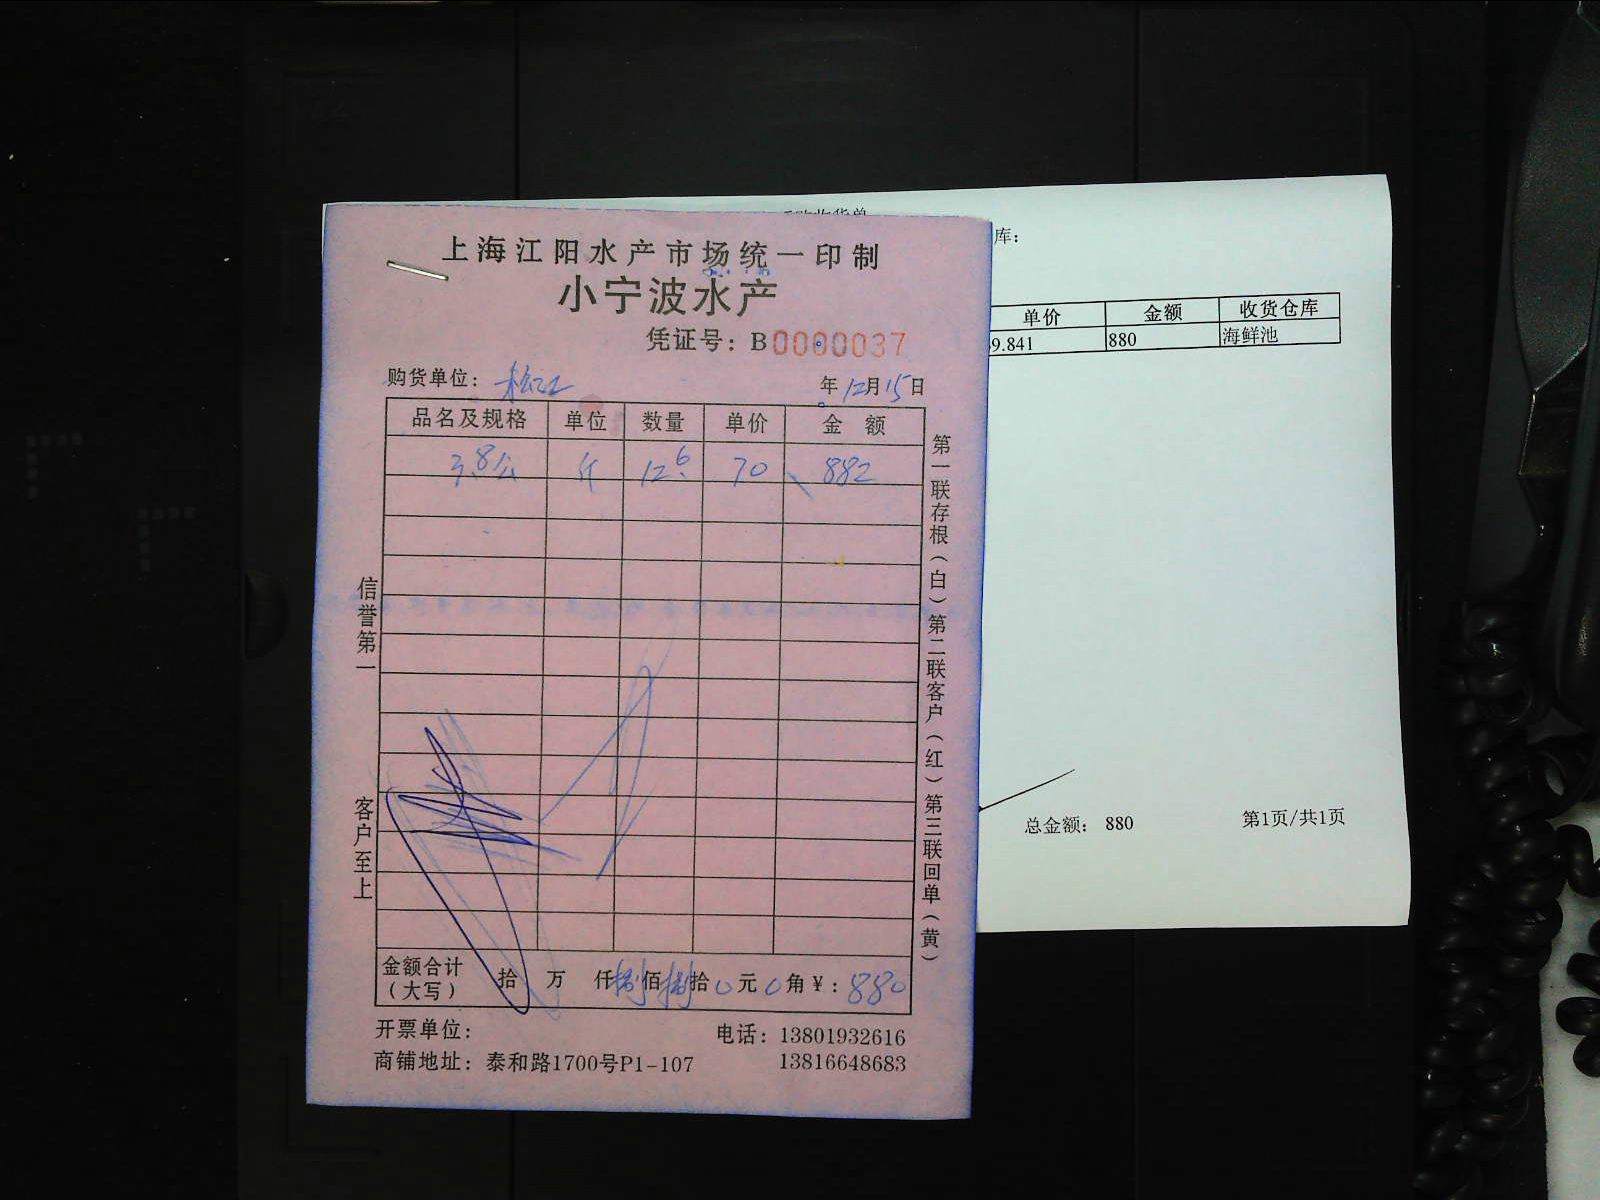 上海江阳水产市场统一印制
小宁波水产
凭证号：B0000037
购货单位：松江 年12月15日
品名及规格 单位 数量 单价 金 额
3.8公 斤 12.6 70 882
信誉第一 客户至上
第一联存根（白）第二联客户（红）第三联回单（黄）
金额合计（大写） 拾 万 仟捌佰捌拾0元0角¥：880
开票单位： 电话：13801932616
商铺地址：泰和路1700号P1-107 13816648683
收货单
库：
单价 金额 收货仓库
9.841 880 海鲜池
总金额：880 第1页/共1页